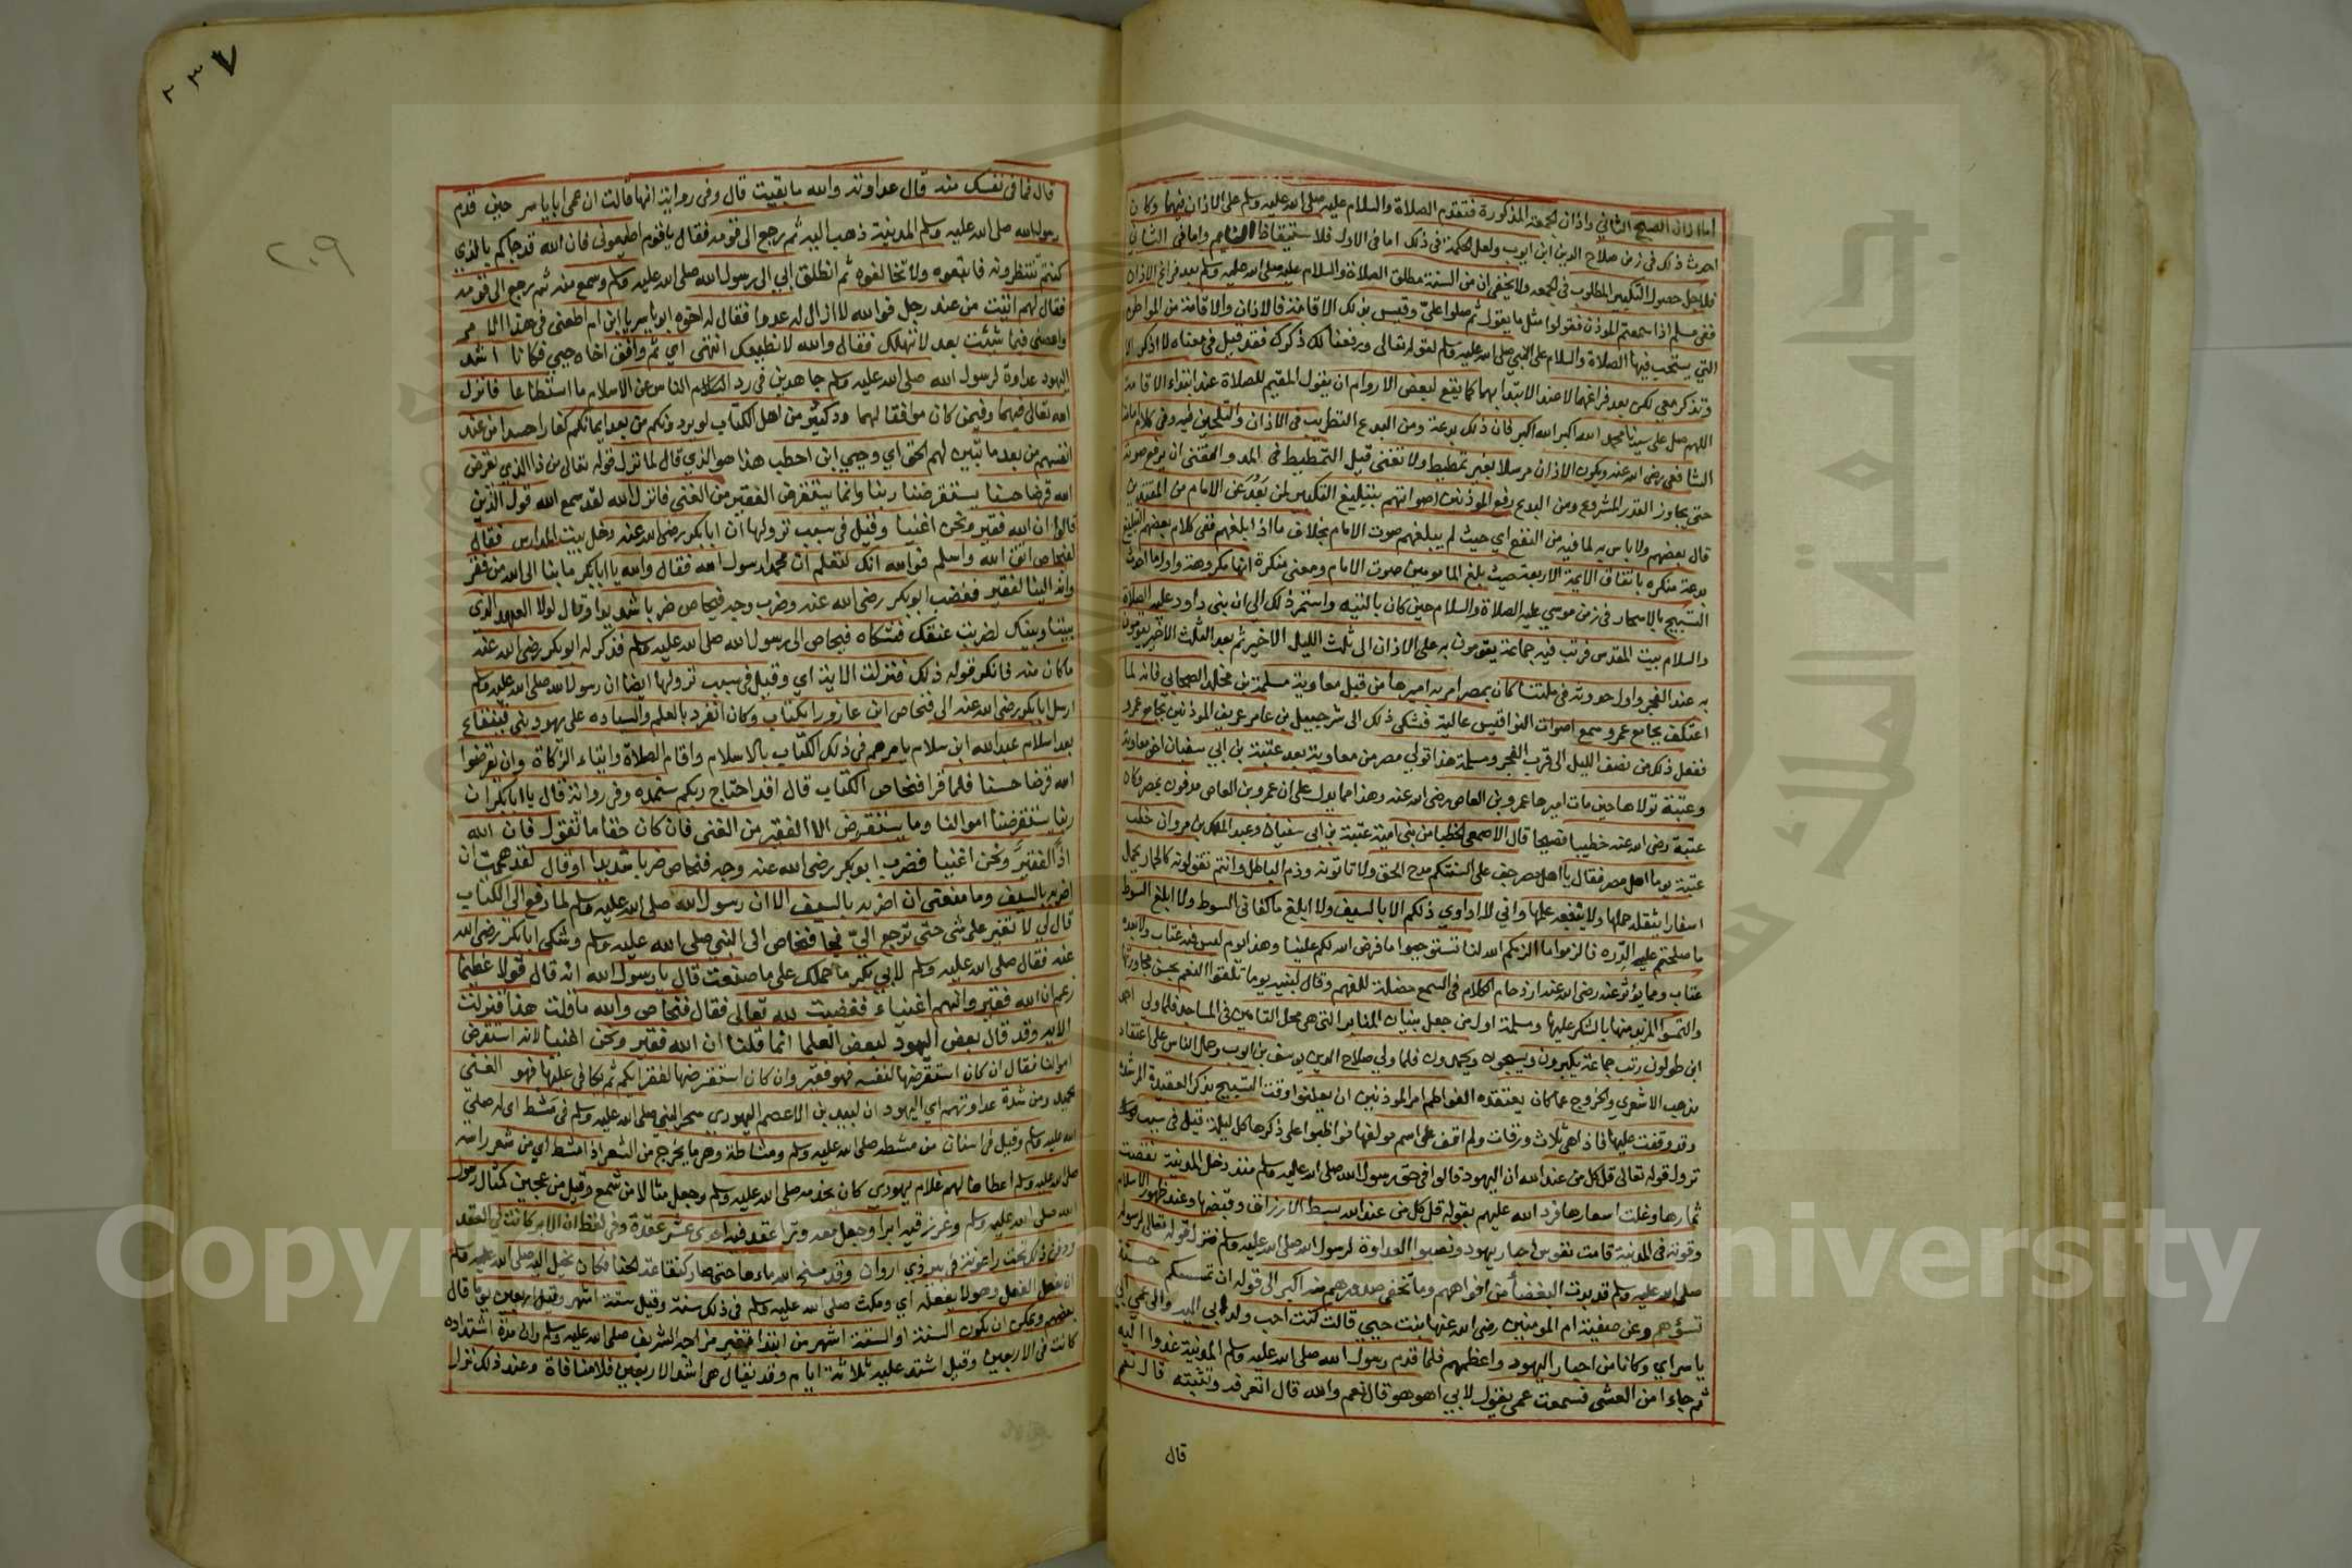 اما اذان الصبح الثاني واذان الجمعة المذكورة فتقدم الصلاة والسلام عليه صلى الله عليه وسلم على الاذان فيهما وكان
احدث ذلك في زمن صلاح الدين ابن ايوب ولعل الحكمة في ذلك اما في الاول فلاستيقاظ النايم واما في الثاني
فلاجل حصول التبكير المطلوب في الجمعة ولا يخفى ان من السنة مطلق الصلاة والسلام عليه صلى الله عليه وسلم بعد فراغ الاذان
ففي مسلم اذا سمعتم الموذن فقولوا مثل ما يقول ثم صلوا علي وقيس بذلك الاقامة فالاذان والاقامة من المواطن
التي يستحب فيها الصلاة والسلام على النبي صلى الله عليه وسلم لقوله تعالى ورفعنا لك ذكرك فقد قيل في معناه لا اذكر الا
وتذكر معي لكن بعد فراغهما لا عند الابتدا بهما كما يقع لبعض الاروام ان يقول المقيم للصلاة عند ابتداء الاقامة
اللهم صل على سيدنا محمد الله اكبر الله اكبر فان ذلك بدعة ومن البدع التطريب في الاذان والتلحين فيه وفي كلام امامنا
الشافعي رضي الله عنه ويكون الاذان مرسلا بغير تمطيط ولا تغنى قيل التمطيط في المد والتغني ان يرفع صوته
حتى يجاوز القدر المشروع ومن البدع رفع الموذنين اصواتهم بتبليغ التكبير لمن بَعُدَ عن الامام من المقتدين
قال بعضهم ولا باس به لما فيه من النفع اي حيث لم يبلغهم صوت الامام بخلاف ما اذا بلغهم ففي كلام بعضهم التبليغ
بدعة منكره باتفاق الايمة الاربعة حيث بلغ المامومين صوت الامام ومعنى منكرة انها مكروهة واول ما احدث
التسبيح بالاسحار في زمن موسي عليه الصلاة والسلام حين كان بالتيه واستمر ذلك الى ان بنى داود عليه الصلاة
والسلام بيت المقدس فرتب فيه جماعة يقومون به على الاذان الى ثلث الليل الاخير ثم بعد الثلث الاخير يقومون
به عند الفجر واول حدوثه في ملتنا كان بمصر امر به اميرها من قبل معاوية مسلمة بن مخلد الصحابي فانه لما
اعتكف بجامع عمرو سمع اصوات النواقيس عالية فشكى ذلك الى شرحبيل بن عامر عريف الموذنين بجامع عمرو
ففعل ذلك من نصف الليل الى قرب الفجر ومسلمة هذا تولى مصر من معاوية بعد عتبة بن ابي سفيان اخي معاوية
وعتبة تولاها حين مات اميرها عمرو بن العاص رضي الله عنه وهذا مما يدل على ان عمرو بن العاص مدفون بمصر وكان
عتبة رضي الله عنه خطيبا فصيحا قال الاصمعي الخطبا من بني امية عتبة بن ابي سفيان وعبد الملك بن مروان خطب
عتبة يوما اهل مصر فقال يا اهل مصر خف على السنتكم مدح الحق ولا تاتونه وذم الباطل وانتم تفعلونه كالحمار يحمل
اسفارا يثقله حملها ولا ينفعه علمها واني لا اداوي دلكم الا بالسيف ولا ابلغ السيف ما كفاني السوط ولا ابلغ السوط
ما صلحتم عليه الدِّره فالزموا ما الزمكم الله لنا تستوجبوا ما فرض الله لكم علينا وهذا يوم ليس فيه عتاب ولا بعده
عتاب ومما يؤثر عنه رضي الله عنه ازدحام الكلام في السمع مضلة للفهم وقال لبنيه يوما تلقوا النعم بحسن مجاورتها
والتمسوا المزيد منها بالشكر عليها ومسلمة اول من جعل بنيان المنابر التي هي محل التاذين في المساجد فلما ولي احمد
ابن طولون رتب جماعة يكبرون ويسبحون ويحمدون فلما ولي صلاح الدين يوسف بن ايوب وحمل الناس على اعتقاد
مذهب الاشعري والخروج عما كان يعتقده الفواطم امر الموذنين ان يعلنوا وقت التسبيح بذكر العقيدة المرشدة
وقد وقفت عليها فاذا هي ثلاث ورقات ولم اقف على اسم مولفها فواظبوا على ذكرها كل ليلة قيل في سبب نزول
نزول قوله تعالى قل كل من عند الله ان اليهود قالوا في حق رسول الله صلى الله عليه وسلم منذ دخل المدينة نقصت
ثمارها وغلت اسعارها فرد الله عليهم بقوله قل كل من عند الله يبسط الارزاق ويقبضها وعند ظهور الاسلام
وقوته في المدينة قامت نفوس احبار يهود ونصبوا العداوة لرسول الله صلى الله عليه وسلم فنزل قوله تعالى لرسوله
صلى الله عليه وسلم قد بدت البغضا من افواههم وما تخفي صدورهم اكبر الى قوله ان تمسسكم حسنة
تسؤهم وعن صفية ام المومنين رضي الله عنها بنت حيي قالت كنت احب ولد ابي اليه والى عمي ابي
ياسر اي وكانا من احبار اليهود واعظمهم فلما قدم رسول الله صلى الله عليه وسلم المدينة غدوا اليه
ثم جاءا من العشي فسمعت عمي يقول لابي اهو هو قال نعم والله قال اتعرفه وتثبته قال نعم
قال
٢٣٧
٢٠٩
قال فما في نفسك منه قال عداوته والله ما بقيت قال وفي رواية انها قالت ان عمي ابا ياسر حين قدم
رسول الله صلى الله عليه وسلم المدينة ذهب اليه ثم رجع الى قومه فقال يا قوم اطيعوني فان الله قد جاكم بالذي
كنتم تنتظرونه فاتبعوه ولا تخالفوه ثم انطلق ابي الى رسول الله صلى الله عليه وسلم وسمع منه ثم رجع الى قومه
فقال لهم اتيت من عند رجل فوالله لا ازال له عدوا فقال له اخوه ابو ياسر يا ابن ام اطعني في هذا الامر
واعصني فيما شئت بعد لا تهلك فقال والله لا نطيعك انتهى اي ثم وافق اخاه حيي فكانا اشد
اليهود عداوة لرسول الله صلى الله عليه وسلم جاهدين في رد الناس عن الاسلام ما استطاعا فانزل
الله تعالى فيهما وفيمن كان موافقا لهما ود كثير من اهل الكتاب لو يردونكم من بعد ايمانكم كفارا حسدا من عند
انفسهم من بعد ما تبين لهم الحق اي وحيي ابن اخطب هذا هو الذي قال لما نزل قوله تعالى من ذا الذي يقرض
الله قرضا حسنا يستقرضنا ربنا وانما يستقرض الفقير من الغني فانزل الله لقد سمع الله قول الذين
قالوا ان الله فقير ونحن اغنيا وقيل في سبب نزولها ان ابا بكر رضي الله عنه دخل بيت المدارس فقال
لفنحاص اتق الله واسلم فوالله انك لتعلم ان محمدا رسول الله فقال والله يا ابا بكر ما بنا الى الله من فقر
وانه الينا لفقير فغضب ابو بكر رضي الله عنه وضرب وجه فنحاص ضربا شديدا وقال لولا العهد الذي
بيننا وبينك لضربت عنقك فشكاه فنحاص الى رسول الله صلى الله عليه وسلم فذكر له ابو بكر رضي الله عنه
ما كان منه فانكر قوله ذلك فنزلت الاية اي وقيل في سبب نزولها ايضا ان رسول الله صلى الله عليه وسلم
ارسل ابا بكر رضي الله عنه الى فنحاص ابن عازورا بكتاب وكان انفرد بالعلم والسياده على يهود بني قينقاع
بعد اسلام عبد الله ابن سلام يامرهم في ذلك الكتاب بالاسلام واقام الصلاة وايتاء الزكاة وان يقرضوا
الله قرضا حسنا فلما قرا فنحاص الكتاب قال اقد احتاج ربكم سنمده وفي رواية قال يا ابا بكر ان
ربنا يستقرضنا اموالنا وما يستقرض الا الفقير من الغني فان كان حقا ما تقول فان الله
اذًا لفقير ونحن اغنيا فضرب ابو بكر رضي الله عنه وجه فنحاص ضربا شديدا وقال لقد هممت ان
اضربه بالسيف وما منعني ان اضربه بالسيف الا ان رسول الله صلى الله عليه وسلم لما دفع الي الكتاب
قال لي لا تفتر على شي حتى ترجع اليّ فجا فنحاص الى النبي صلى الله عليه وسلم وشكى ابا بكر رضي الله
عنه فقال صلى الله عليه وسلم لابي بكر ما حملك على ما صنعت قال يا رسول الله انه قال قولا عظيما
زعم ان الله فقير وانهم اغنياء فغضبت لله تعالى فقال فنحاص والله ما قلت هذا فنزلت
الاية وقد قال بعض اليهود لبعض العلما انما قلنا ان الله فقير ونحن اغنيا لانه استقرض
اموالنا فقال ان كان استقرضها لنفسه فهو فقير وان كان استقرضها لفقرايكم ثم يكافي عليها فهو الغني
الحميد ومن شدة عداوتهم اي اليهود ان لبيد بن الاعصم اليهودي سحر النبي صلى الله عليه وسلم في مشط اي له صلى
الله عليه وسلم وقيل في اسنان من مشطه صلى الله عليه وسلم ومشاطة وهي ما يخرج من الشعر اذا مشط اي من شعر راسه
صلى الله عليه وسلم اعطاها لهم غلام يهودي كان يخدمه صلى الله عليه وسلم وجعل مثالا من شمع وقيل من عجين كمثال رسول
الله صلى الله عليه وسلم وغرز فيه ابرا وجعل معه وترا عقد فيه احدى عشر عقدة وفي لفظ ان الابر كانت في العقد
ودفن ذلك تحت راعوثة في بير ذي اروان وقد مسخ الله ماءها حتى صار كنقاعة الحنا فكان يخيل اليه صلى الله عليه وسلم
انه يفعل الفعل وهو لا يفعله اي ومكث صلى الله عليه وسلم في ذلك سنة وقيل ستة اشهر وقيل اربعين يوما قال
بعضهم ويمكن ان يكون السنة او الستة اشهر من ابتدا تغير مزاجه الشريف صلى الله عليه وسلم وان مدة اشتداده
كانت في الاربعين وقيل اشتد عليه ثلاثة ايام وقد يقال هي اشد الاربعين فلا منافاة وعند ذلك نزل
جامعة الملك سعود
Copyright © King Saud University